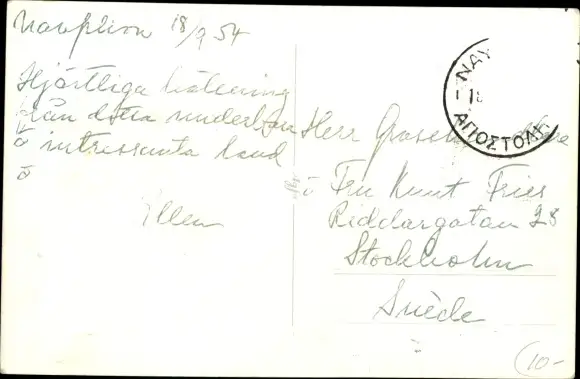 Nauplion 18/9 54
Hjärtliga hälsning
från detta underbara
o intressanta land
Ellen
Herr
o Fru Knut Fries
Riddargatan 28
Stockholm
Suède
ΝΑΥ
18
ΑΠΟΣΤΟΛΗ
10-